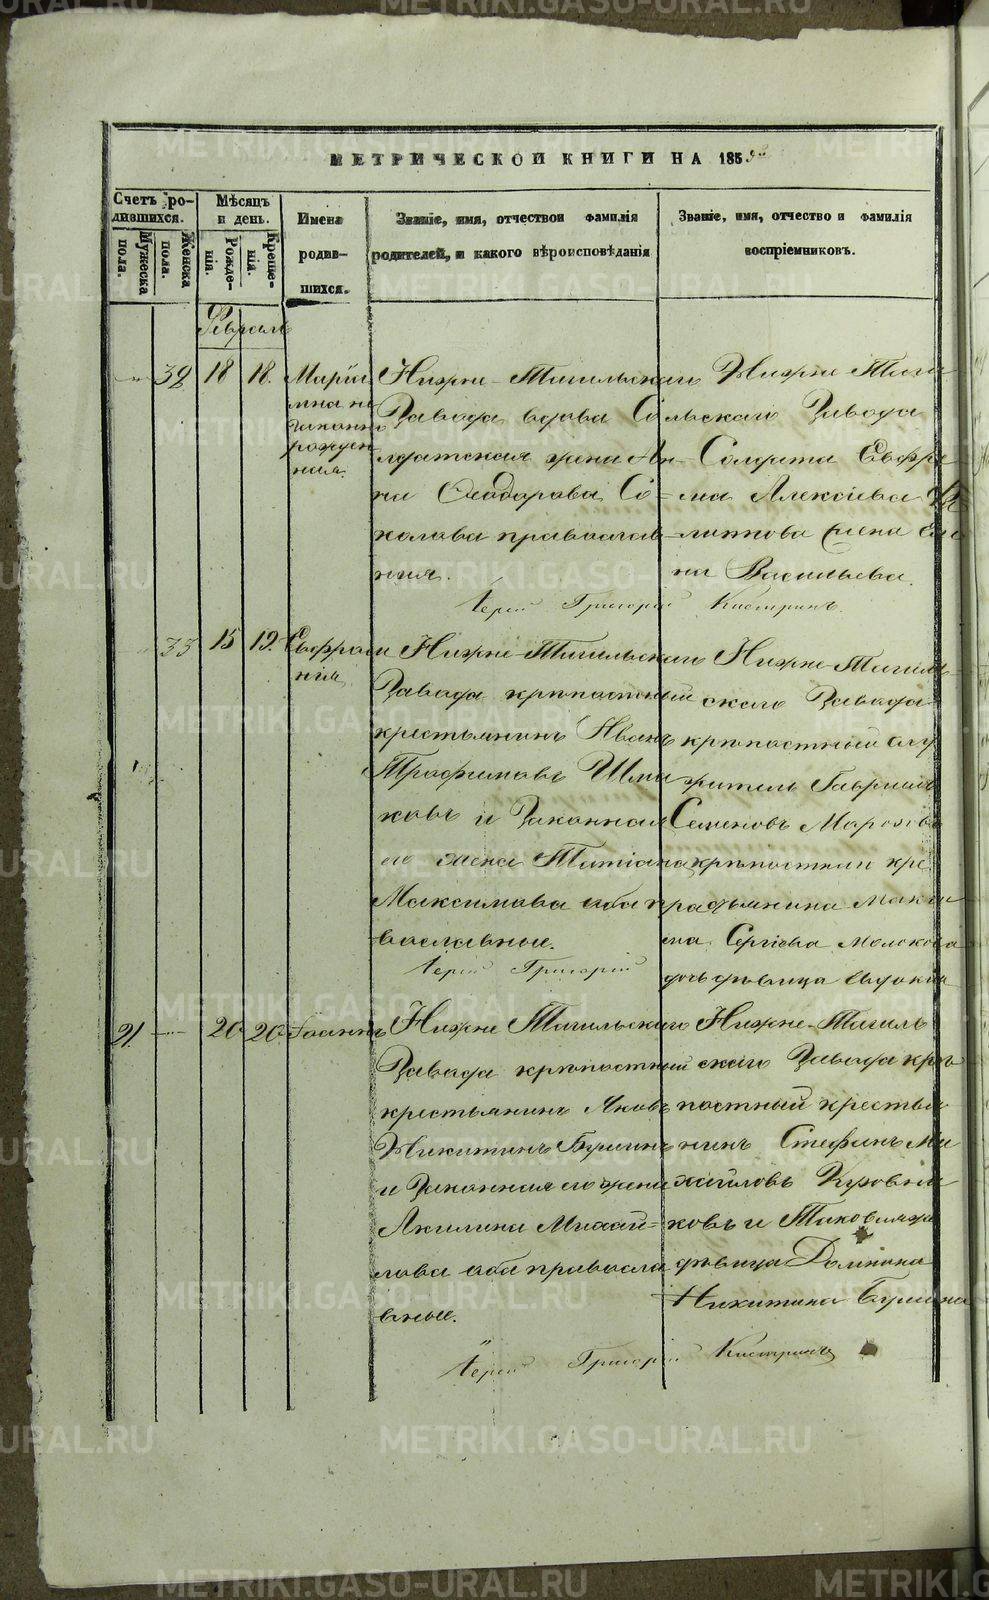 МЕТРИЧЕСКОЙ КНИГИ НА 185
Счетъ ро-
дившихся.
Мужеска
пола.
Женска
пола.
Мѣсяцъ
и день.
Рожде-
нія.
Креще-
нія.
Имена
родив-
шихся.
Званіе, имя, отчество и фамилія
родителей, и какого вѣроисповѣданія
Званіе, имя, отчество и фамилія
воспріемниковъ.
Февраль
32 18 18.
Марiи
мна не
законн
рожден
ная.
Нижне-Тагильскаго
Завода вдова Со
лдатская жена Ан-
на Ѳеодорова Со-
колова православ-
ная.
Нижне Таги
льскаго Завода
Солдата Ефре
ма Алексіева
липпова жена Еле
на Васильева.
Іерей Григорій Кастринъ.
33 15 19.
Евфроси
нія
Нижне-Тагильскаго
Завода крѣпостный
крестьянинъ Иванъ
Трофимовъ Шма
ковъ и Законная
его жена Татіана
Максимова оба пра
вославные.
Іерей Григорій
Нижне-Тагиль
скаго Завода
крѣпостный слу
житель Гавріилъ
Семеновъ Морозовъ
крѣпостнаи кре
стьянина Макси
ма Сергіева Молокова
дочь дѣвица Евдокія
21. 20 20
Іоаннъ
Нижне Тагильскаго
Завода крѣпостный
крестьянинъ Яковъ
Никитинъ Бушинъ
и Законная его жена
Акилина Михай-
лова оба правосла
вные.
Нижне-Тагиль
скаго Завода крѣ
постный крестья
нинъ Стефанъ Ми
хайловъ
ковъ и Таковаяже
дѣвица Домнина
Никитина Бушина
Іерей Григорій Кастринъ
METRIKI.GASO-URAL.RU